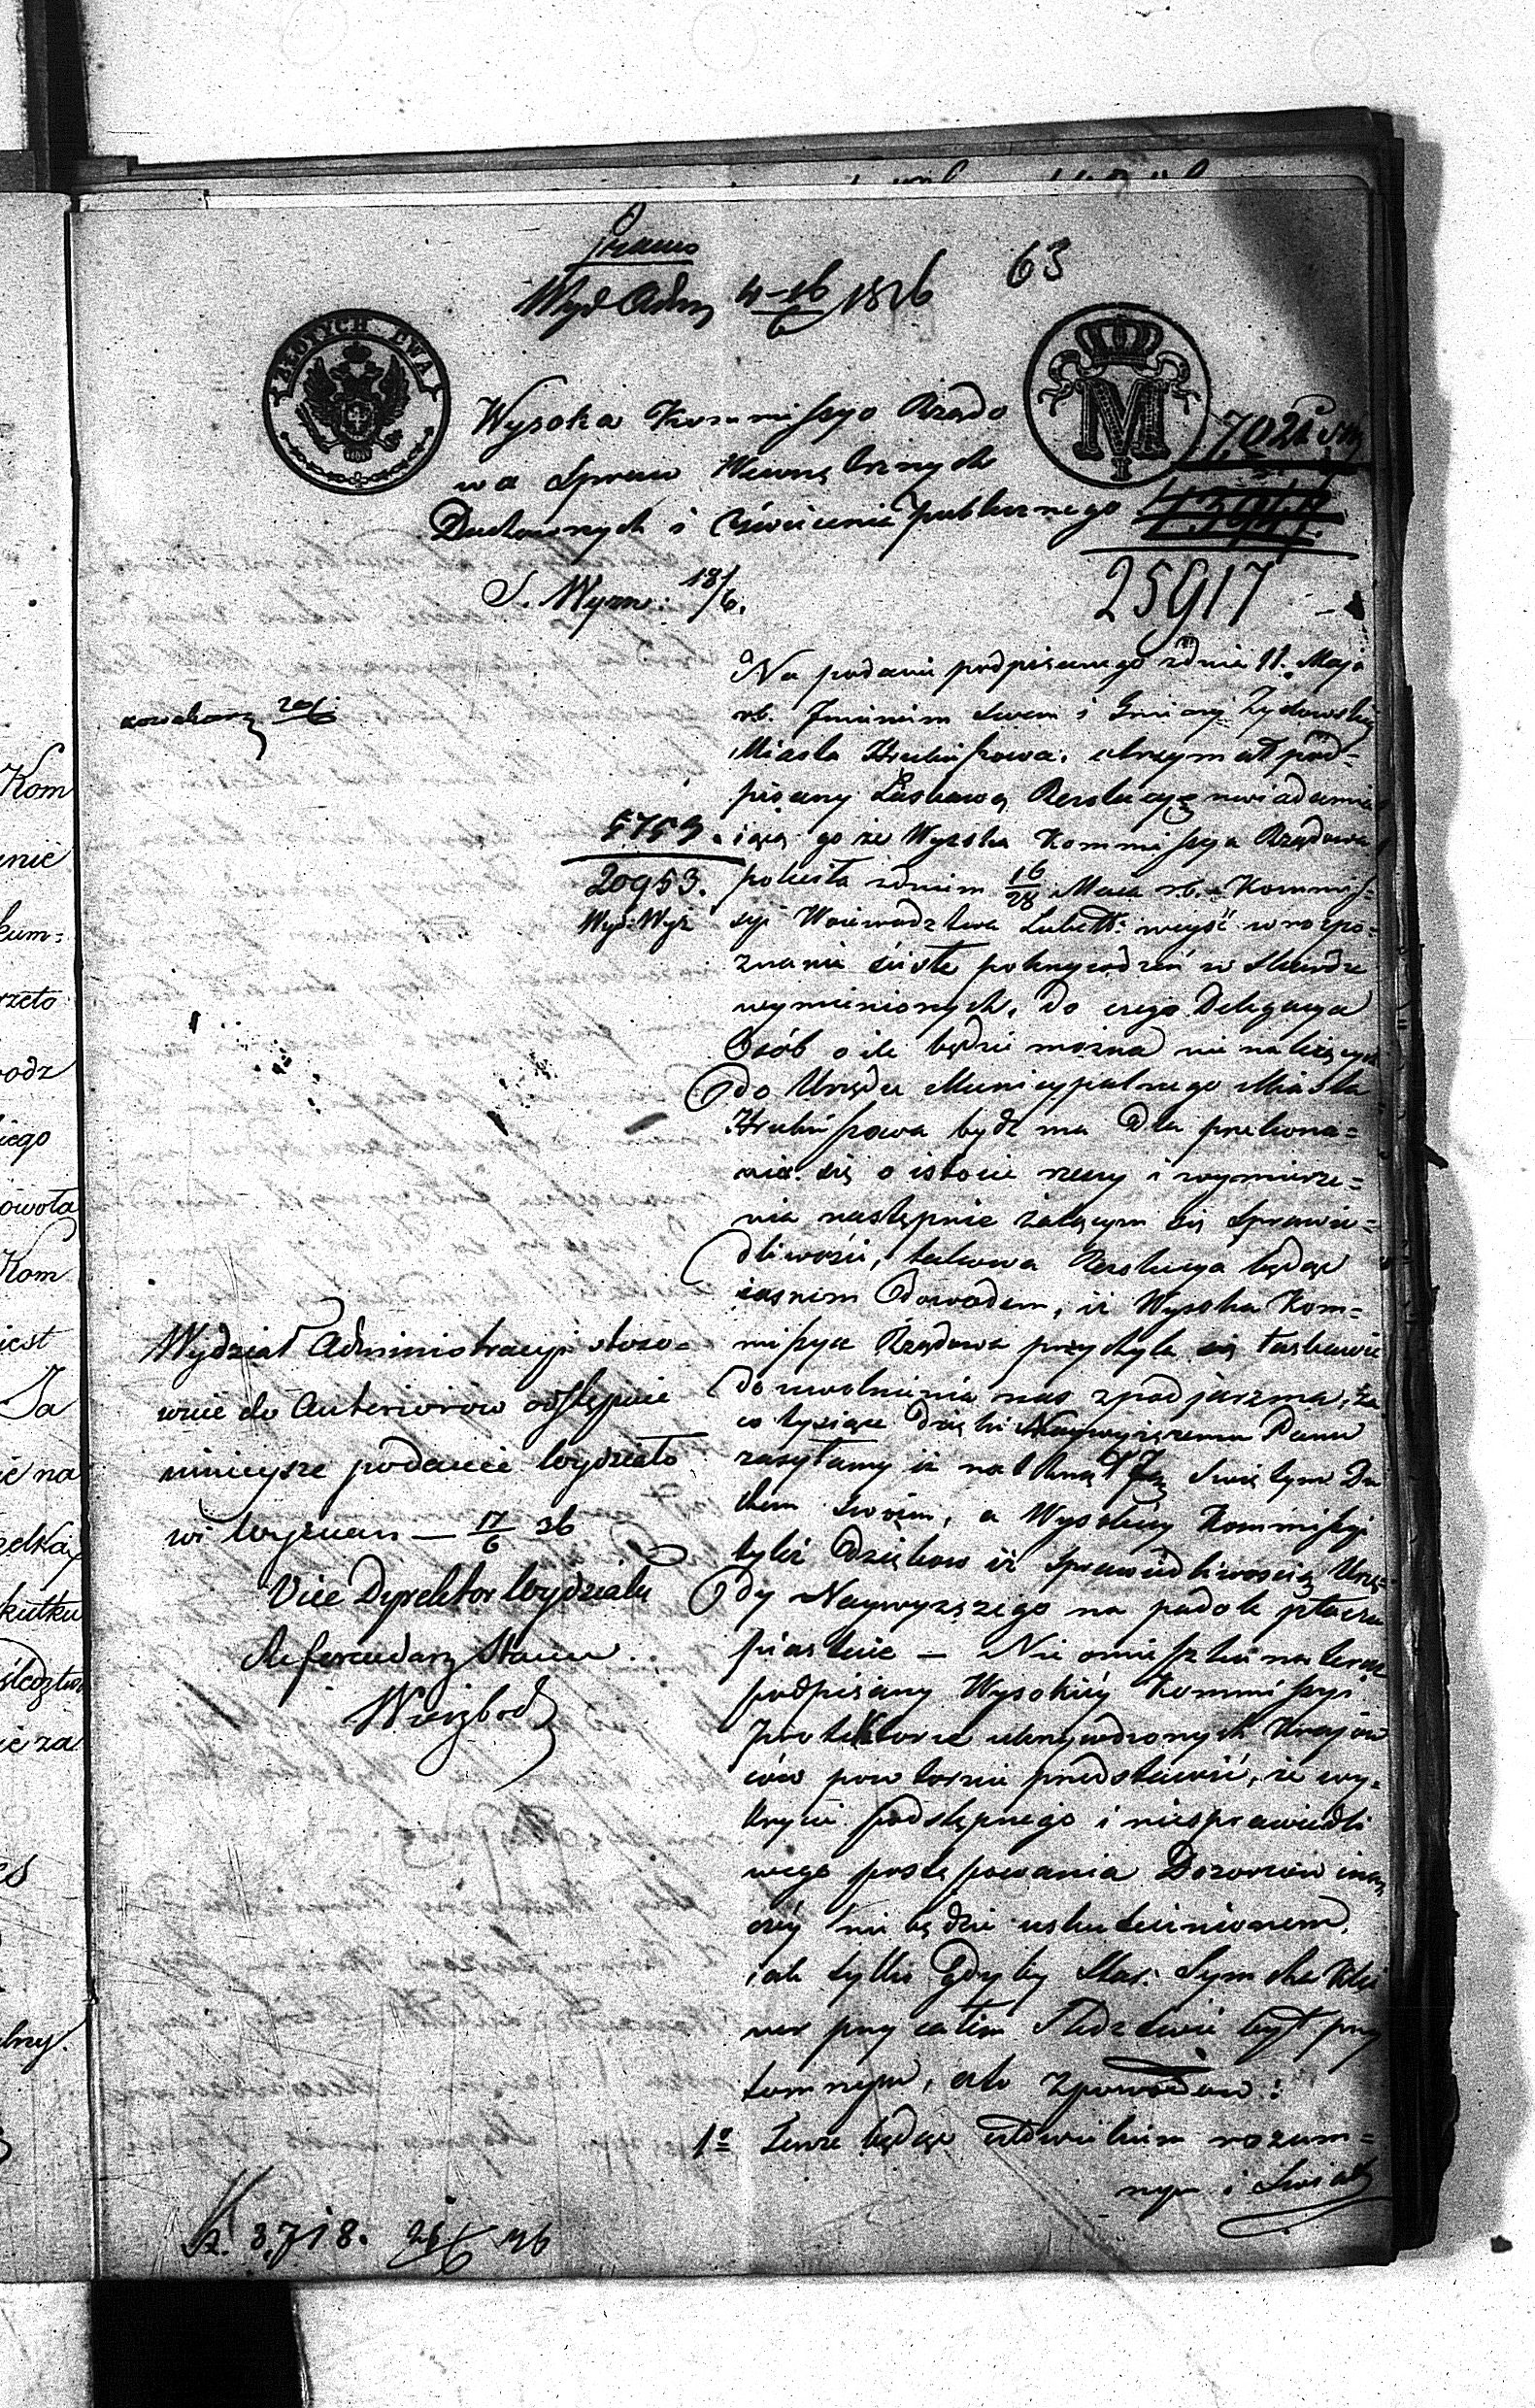 Prawo
Wyd Adm 4-16/6 1836
63
ZŁOTYCH DWA
M
I
Wysoka Kommissyo Rządo
wa Spraw Wewnętrznych
Duchownych i Oświecenia publicznego
7021
25917
S. Wyzn: 18/6.
Na podanie podpisanego zdnia 11. Maja
rb. Imieniem swem i Gminy Żydowskiy
Miasta Hrubieszowa, otrzymał pod-
pisany Łaskawą Rezolucyę uwiadamia
iącą go że Wysoka Kommissya Rządowa
poleciła zdniem 16/28 Maia rb. Kommis-
syi Woiewództwa Lubelk: weyść w rozpo-
znanie ściśłe pokrzywdzeń w Skardze
wymienionych, do czego Delegacya
Osób o ile będzie można nie należących
do Urzędu Municypalnego Miasta
Hrubieszowa bydź ma dla przekona-
nia się o istocie rzeczy i wymierze-
nia następnie żalącym się sprawie-
dliwości, takowa Rezolucya będąc
iasnem dowodem, iż Wysoka Kom-
missya Rządowa przychyla się łaskawie
do uwolnienia nas zpod jarzma, za
co tysiące dzięki Naywyższemu Panu
zasyłamy iż natchnął Ją Swiętym Du
chem swoim, a Wysokiey Kommissyi
tyleż dzięków iż sprawiedliwością Urzę-
dy Naywyższego na padole płaczu
piastuie — Nie omieszka na teraz
podpisany Wysokiéy Kommissyi
Protektorce ukrzywdzonych Kraiow
ców powtórnie przedstawić, że wy-
krycie podstępnego i niesprawiedli
wego postępowania Dozorców inac
zéy nie będzie uskutecznionem,
iak tylko gdyby Star: Symcha
ner przy całém Śledztwie był przy
tomnym, a to z powodów:
1o Tenże będąc człowiekiem rozum-
nym i Swiatł
20/6
5753.
20953.
Wyd: Wyz
Wydział Administracyi stoso-
wnie do Anteriorow odstępuie
ninieysze podanie Wydziało
wi Wyznan — 17/6 36
Vice Dyrektor Wydziału
Referendarz Stanu
8,718. 26/6 36
Kom
anie
kum-
rzeto
odz
iego
owoła
Kom
iest
Ja
ie na
edka
kutku
śledztw
ie za